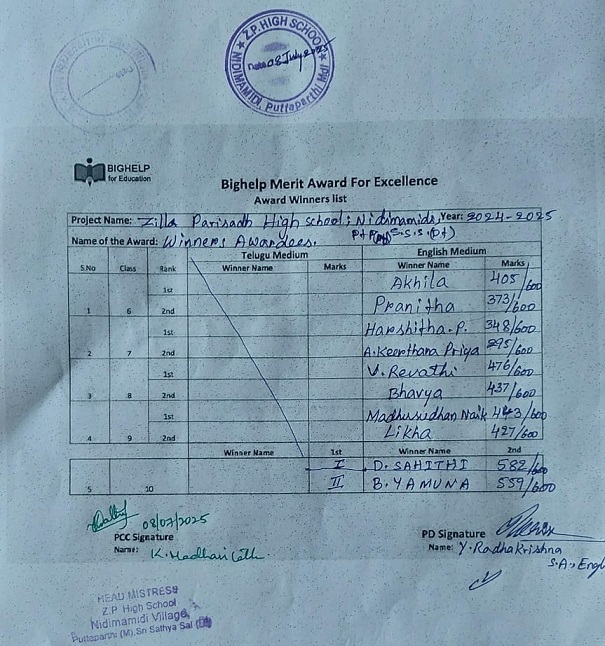 Z.P. HIGH SCHOOL
Date 08 July 2025
NIDIMAMIDI, Puttaparthi Mdl
BIGHELP
for Education
Bighelp Merit Award For Excellence
Award Winners list
Project Name: Zilla Parisadh High school; Nidimamidi, Year: 2024-2025
Name of the Award: Winners Awardees.
Telugu Medium English Medium
S.No Class Rank Winner Name Marks Winner Name Marks
1st Akhila 405/600
1 6 2nd Pranitha 373/600
1st Harshitha.P. 348/600
2 7 2nd A.Keerthana Priya 295/600
1st V. Revathi 476/600
3 8 2nd Bhavya 437/600
1st Madhusudhan Naik 443/600
4 9 2nd Likha 427/600
Winner Name 1st Winner Name 2nd
I D. SAHITHI 582/600
5 10 II B. YAMUNA 559/600
08/07/2025
PCC Signature
Name: K. Madhavi Lath.
PD Signature
Name: Y. Radhakrishna
S.A, Engl
HEAD MISTRESS
Z.P. High School
Nidimamidi Village,
Puttaparthi (M), Sri Sathya Sai